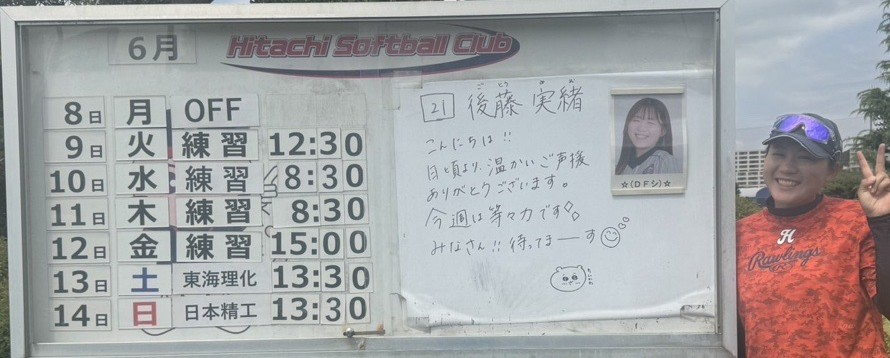 6月
Hitachi Softball Club
8日 月 OFF
9日 火 練習 12:30
10日 水 練習 8:30
11日 木 練習 8:30
12日 金 練習 15:00
13日 土 東海理化 13:30
14日 日 日本精工 13:30
21 後藤 実緒
こんにちは!!
日頃より、温かいご声援
ありがとうございます。
今週は等々力です
みなさん!! 待ってまーす
☆(DFシ)☆
H
Rawlings